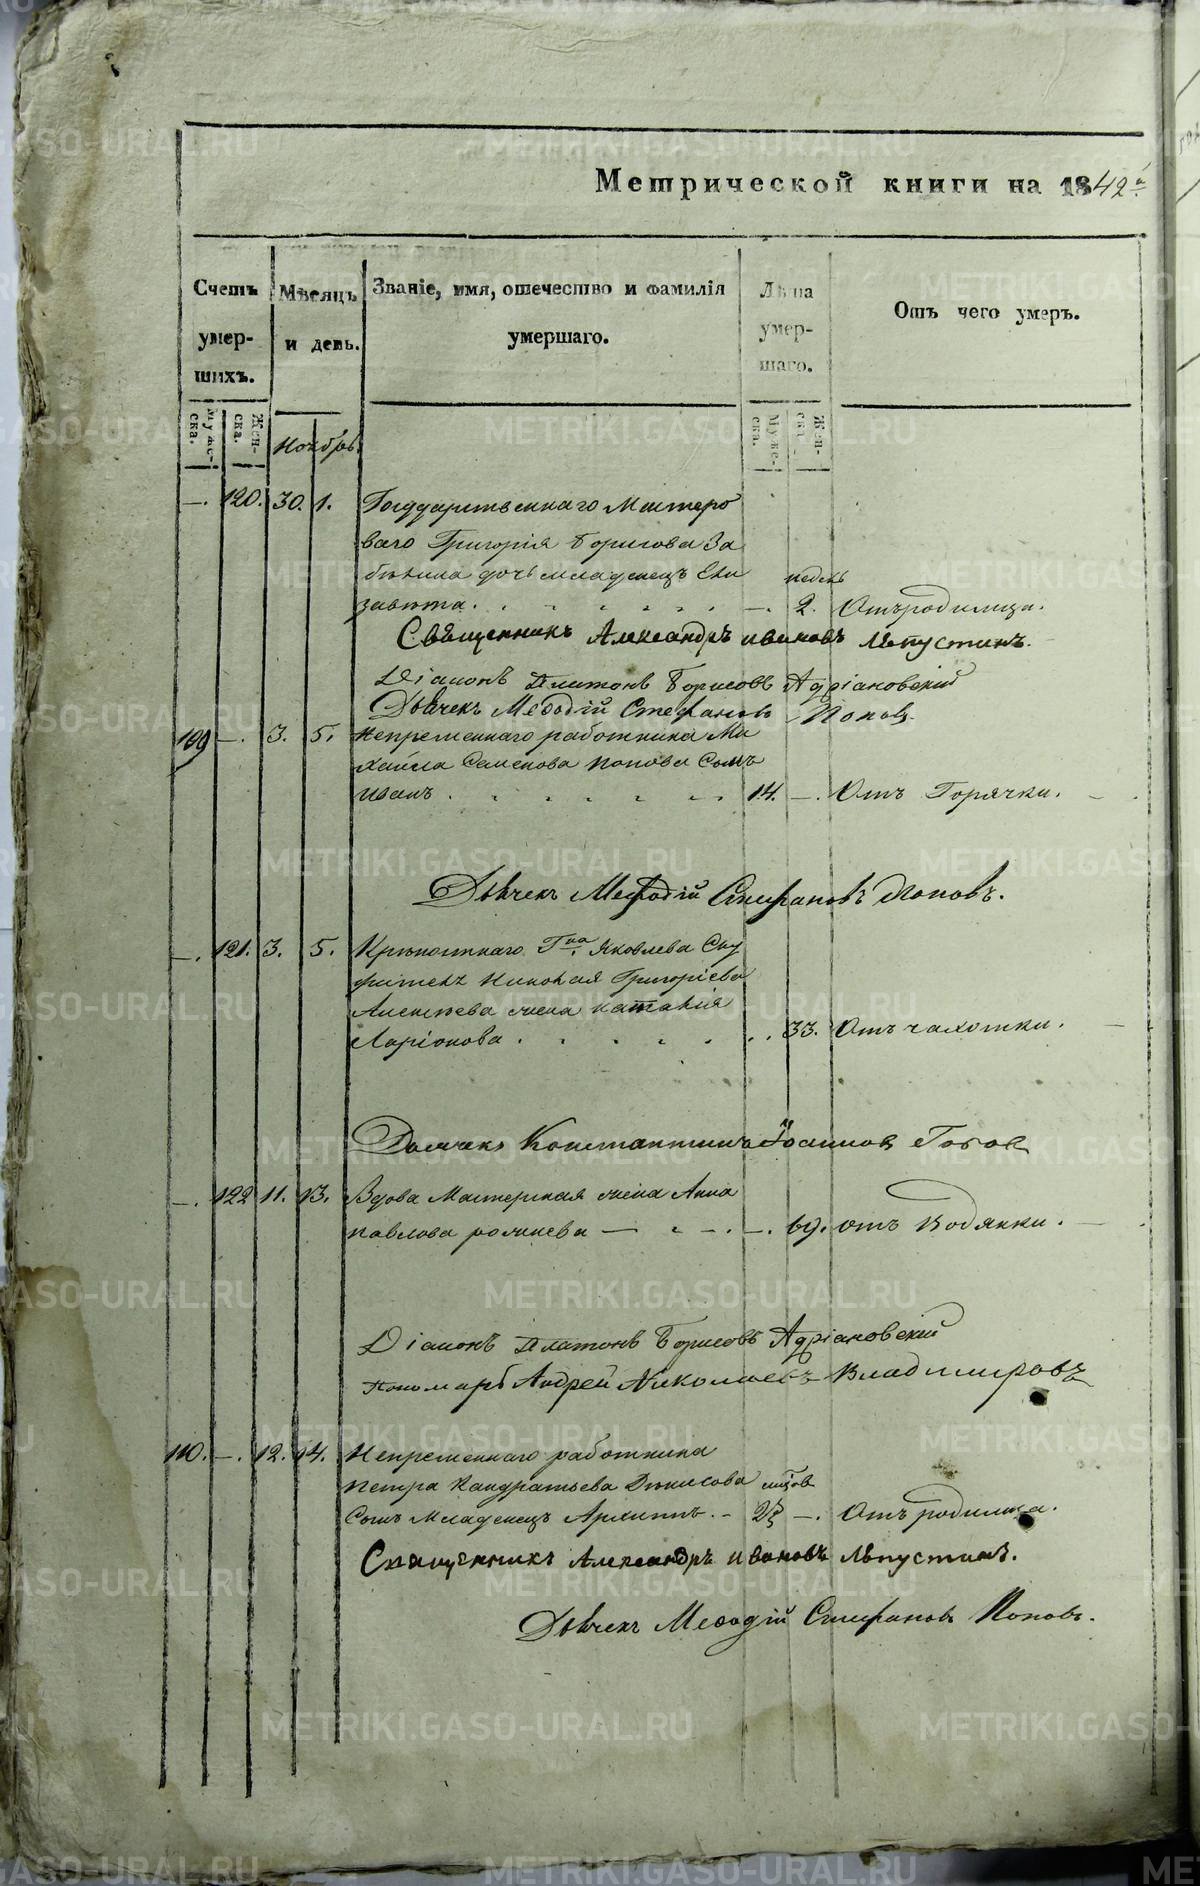 Метрической книги на 1842й
Счетъ умер-шихъ.
Мѣсяцъ и день.
Званіе, имя, отечество и фамилія умершаго.
Лѣта умер-шаго.
Отъ чего умеръ.
Муже-ска.
Жен-ска.
Ноябрь.
Муже-ска.
Жен-ска.
—. 120. 30. 1. Государственнаго Мастеро
ваго Григорія Борисова За
бѣлина дочь младенецъ Ели недель
завѣта. —. 2. Отъ родимца.
Священникъ Александръ Ивановъ Лѣпустинъ.
Діаконъ Платонъ Борисовъ Адріановскій
Дьячекъ Меѳодій Стефановъ Поповъ.
109 —. 3. 5. Непременнаго работника Ми
хайла Семенова Попова Сынъ
Иванъ. 14. —. Отъ Горячки.
Дьячекъ Мефодій Стефановъ Поповъ.
—. 121. 3. 5. Крѣпостнаго Гна Яковлева
Николая Григоріева
Алексѣева жена Наталія
Ларіонова. 33. Отъ чахотки.
Дьячекъ Константинъ Іоанновъ
—. 122 11. 13. Вдова Мастерская жена Анна
Павлова —. 69. Отъ Водянки.
Діаконъ Платонъ Борисовъ Адріановскій
Пономарь Андрей Николаевъ Владимировъ
110. —. 12. 14. Непременнаго работника
Петра Кандратьева Денисова
Сынъ Младенецъ Архиппъ. —. Отъ родимца.
Священникъ Александръ Ивановъ Лѣпустинъ.
Дьячекъ Меѳодій Стефановъ Поповъ.
METRIKI.GASO-URAL.RU